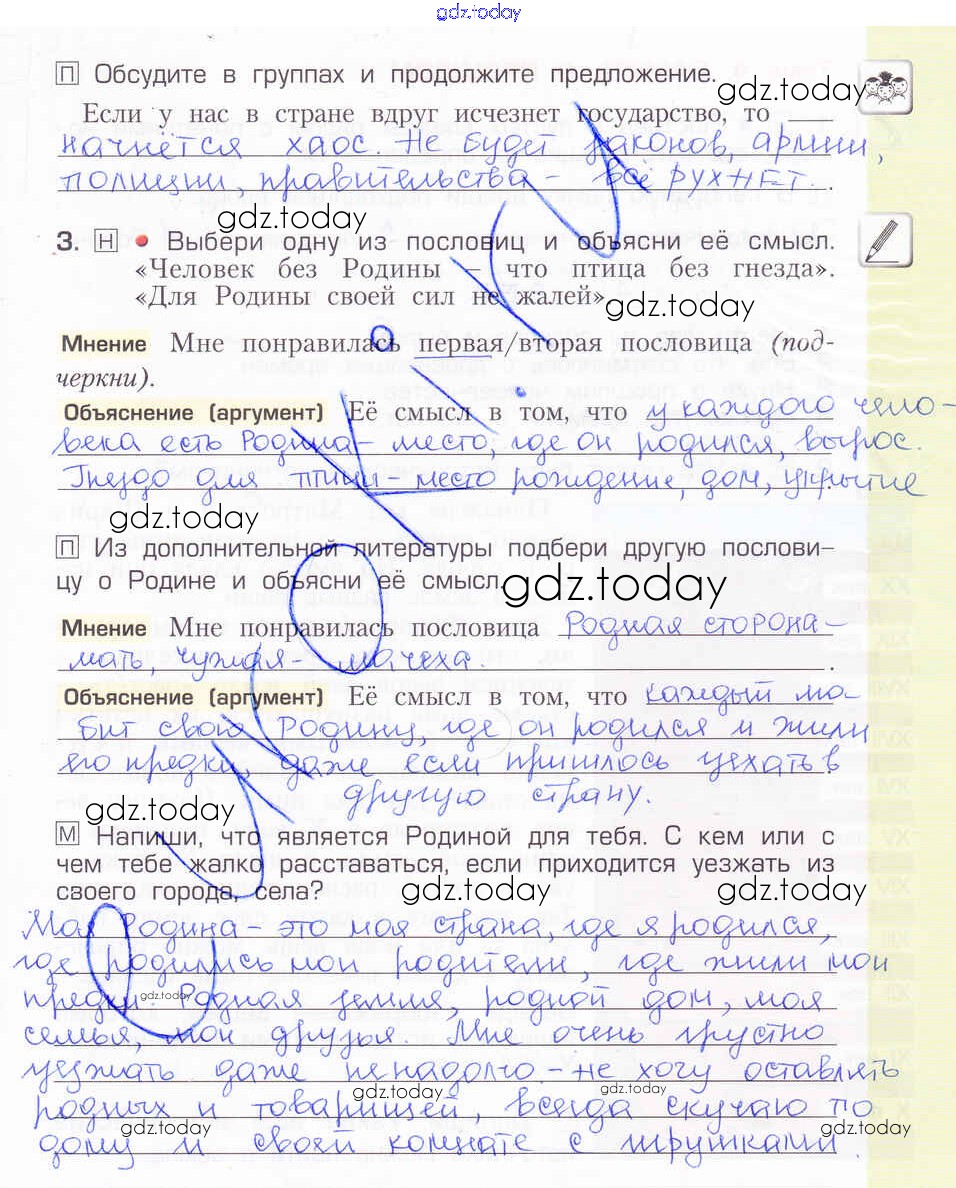 gdz.today
П Обсудите в группах и продолжите предложение.
gdz.today
Если у нас в стране вдруг исчезнет государство, то
начнётся хаос. Не будет законов, армии,
полиции, правительства – всё рухнет.
gdz.today
3. Н • Выбери одну из пословиц и объясни её смысл.
«Человек без Родины – что птица без гнезда».
«Для Родины своей сил не жалей».
gdz.today
Мнение Мне понравилась первая/вторая пословица (под-
черкни).
Объяснение (аргумент) Её смысл в том, что у каждого чело-
века есть Родина – место, где он родился, вырос.
Гнездо для птицы – место рождение, дом, укрытие
gdz.today
П Из дополнительной литературы подбери другую послови-
цу о Родине и объясни её смысл.
gdz.today
Мнение Мне понравилась пословица Родная сторона –
мать, чужая – мачеха.
Объяснение (аргумент) Её смысл в том, что каждый лю-
бит свою Родину, где он родился и жили
его предки, даже если пришлось уехать в
другую страну.
gdz.today
М Напиши, что является Родиной для тебя. С кем или с
чем тебе жалко расставаться, если приходится уезжать из
своего города, села?
gdz.today gdz.today
Моя Родина – это моя страна, где я родился,
где родились мои родители, где жили мои
предки. Родная земля, родной дом, моя
gdz.today
семья, мои друзья. Мне очень грустно
уезжать даже ненадолго – не хочу оставлять
gdz.today gdz.today
родных и товарищей, всегда скучаю по
gdz.today gdz.today
дому и своей комнате с игрушками.